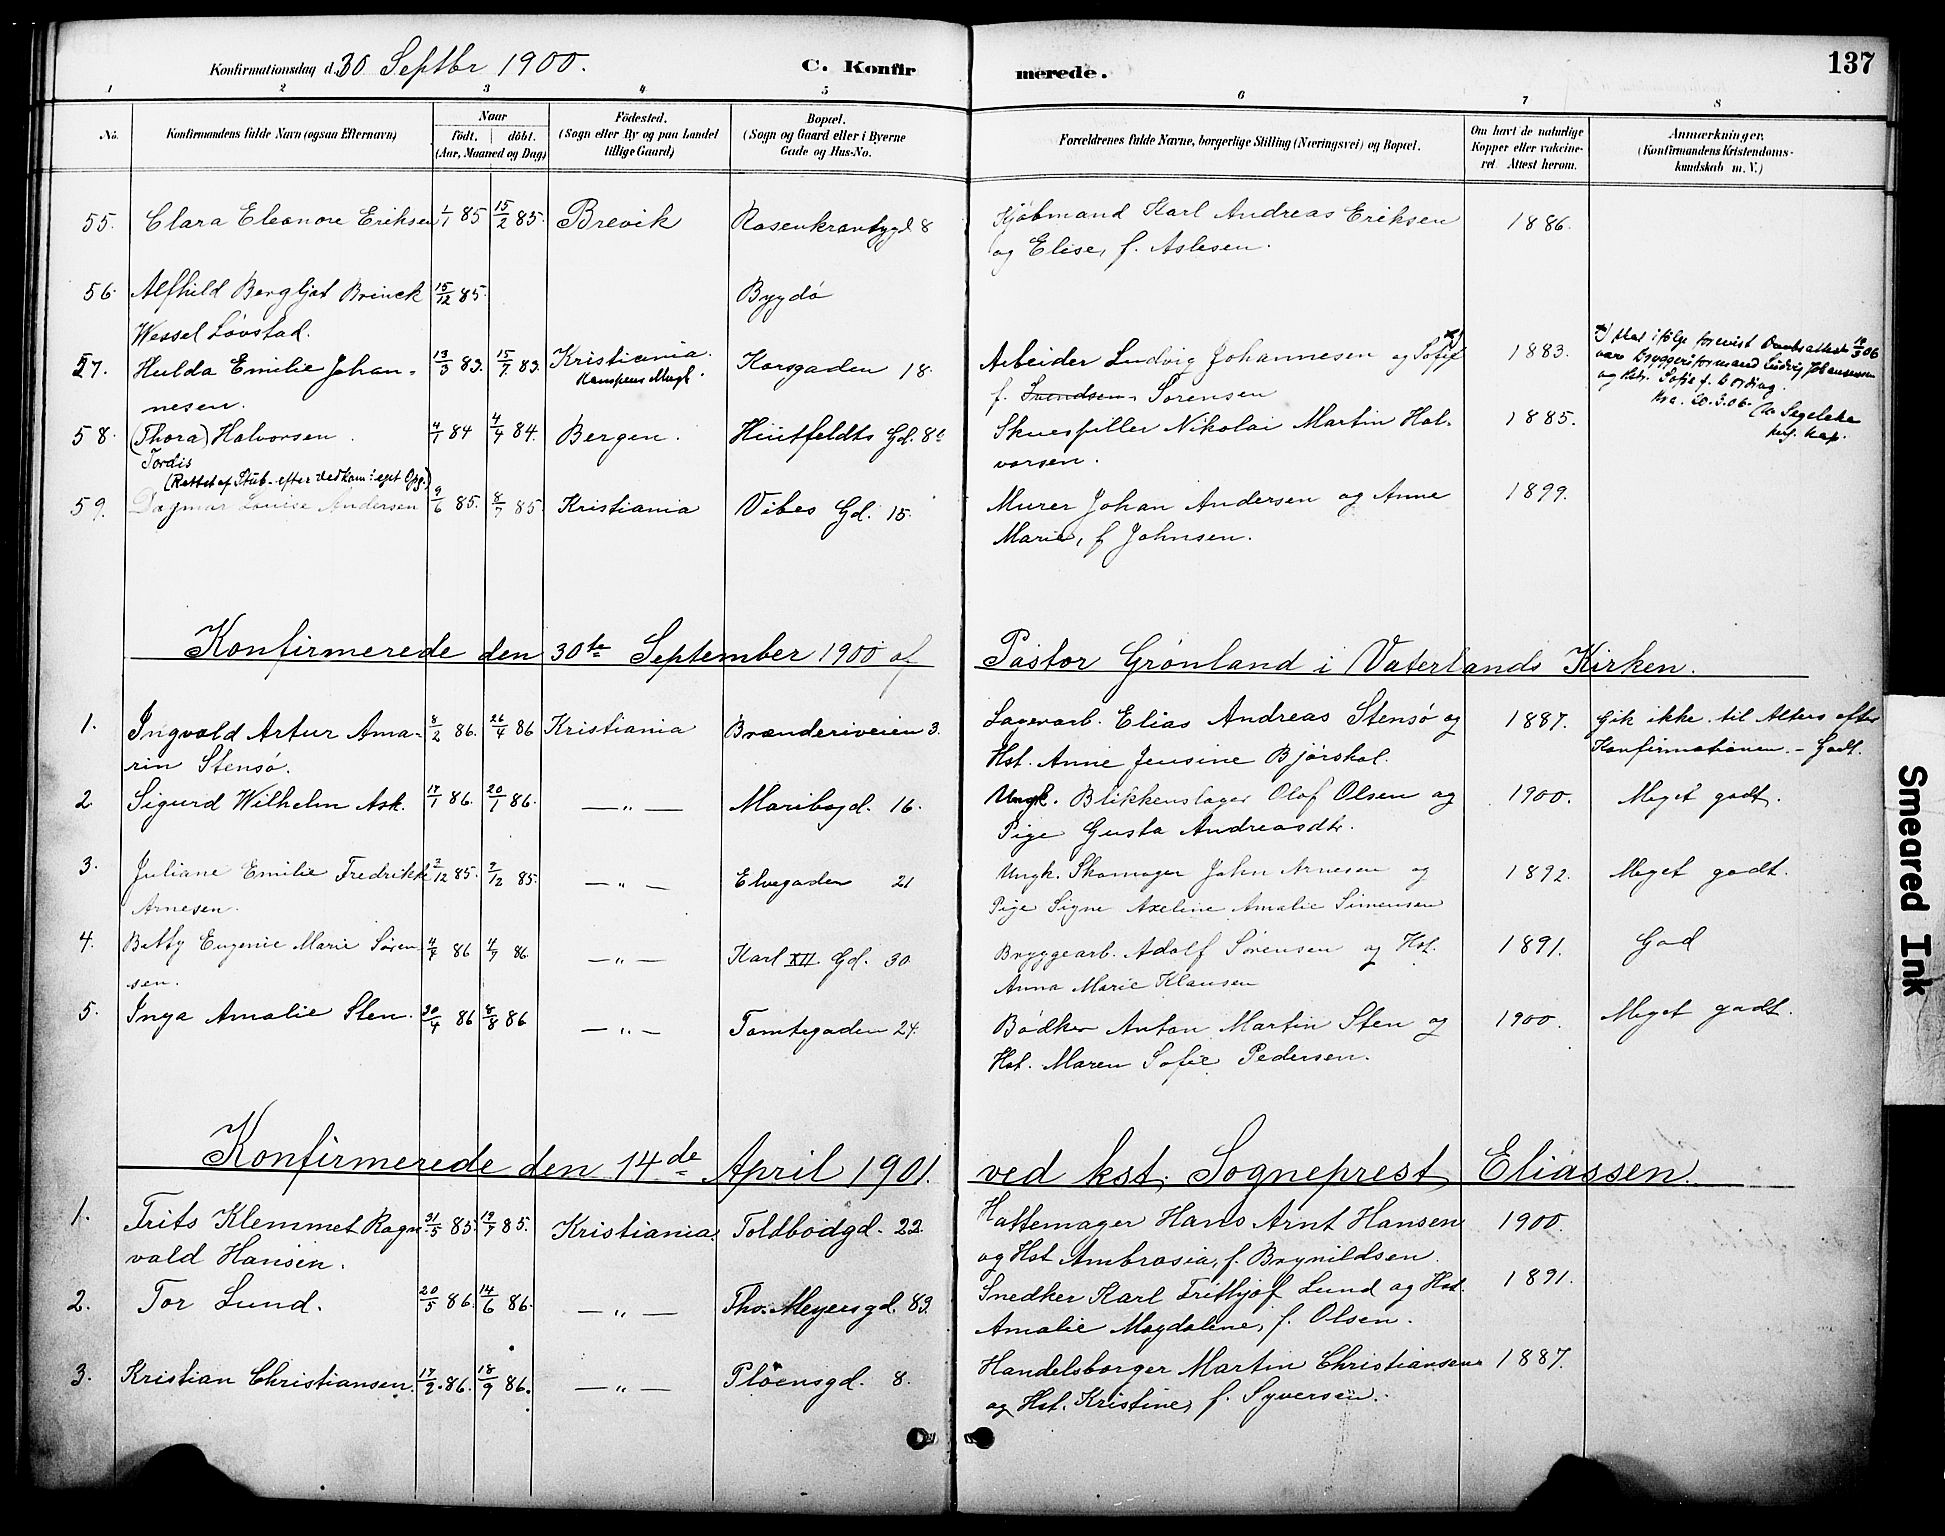 Konfirmationsdag d. 30 Septbr 1900. C. Konfirmerede. 137
1 2 3 4 5 6 7 8
No. Konfirmandens fulde Navn (ogsaa Efternavn)
Naar født. døbt. (Aar, Maaned og Dag)
Fødested. (Sogn eller By og paa Landet tillige Gaard)
Bopæl. (Sogn og Gaard eller i Byerne Gade og Hus-No.
Forældrenes fulde Navne, borgerlige Stilling (Næringsvei) og Bopæl.
Om havt de naturlige Kopper eller vakcineret. Attest herom.
Anmærkninger. (Konfirmandens Kristendomskundskab m. V.)
55. Clara Eleonore Eriksen 1/1 85 15/2 85. Brevik Rosenkrantzgd. 8 Kjøbmand Karl Andreas Eriksen 1886.
og Elise, f. Aslesen.
56. Alfhild Bergljot Brinck 15/12 85. Bygdø
Wessel Løvstad.
57. Hulda Emilie Johan- 13/3 83. 15/7 83. Kristiania. Korsgaden 18. Arbeider Ludvig Johannesen og Sofie x) 1883.
nesen. f. Svendsen, Sørensen
x) Skal ifølge forevist Daabsattest 19/3 06
være Bryggeriformand Ludvig Johannesen
og Hst. Sofie f. Cording.
Kra. 20.3.06.
58. (Thora) Halvorsen. 4/1 84 4/4 84. Bergen. Huitfeldts Gd. 8c Skuespiller Nikolai Martin Hal- 1885.
Tordis vorsen.
(Rettet af Stub. efter vedkom: eget Opg.)
59. Dagmar Louise Andersen 9/6 85. 8/7 85. Kristiania Vibes Gd. 15. Murer Johan Andersen og Anne 1899.
Marie, f Johnsen.
Konfirmerede den 30te September 1900 af Pastor Grønland i Vaterlands Kirken.
1. Ingvald Artur Ama- 8/2 86. 26/4 86 Kristiania Brænderiveien 3. Lagerarb. Elias Andreas Stensø og 1887. Gik ikke til Alters efter
rin Stensø. Hst. Anne Jensine Bjørskol. Konfirmationen. – Godt.
2 Sigurd Wilhelm Ask. 17/1 86. 20/1 86. — „ — Maribogd. 16. Ungk. Blikkenslager Olof Olsen og 1900. Meget godt.
Pige Gusta Andreasdtr.
3. Juliane Emilie Fredrikke 2/12 85. 2/12 85. — „ — Elvegaden 21 Ungk. Skomager John Arnesen og 1892. Meget godt.
Arnesen. Pige Signe Axeline Amalie Simensen
4. Betty Eugenie Marie Søren- 4/7 86 4/7 86. — „ — Karl XII. Gd. 30. Bryggearb. Adolf Sørensen og Hst. 1891. God
sen. Anna Marie Klausen
5. Inga Amalie Sten. 30/4 86 8/8 86 — „ — Tomtegaden 24. Bødker Anton Martin Sten og 1900. Meget godt.
Hst. Maren Sofie Pedersen.
Konfirmerede den 14de April 1901. ved kst. Sogneprest Eliassen.
1. Frits Klemmet Ragn 31/5 85 19/7 85. Kristiania. Toldbodgd. 22. Hattemager Hans Arnt Hansen 1900.
vald Hansen. og Hst Ambrosia, f. Brynildsen.
2. Tor Lund. 20/5 86. 14/6 86. — „ — Ths. Meyersgd. 83. Snedker Karl Frithjof Lund og Hst. 1891.
Amalie Magdalene, f. Olsen.
3. Kristian Christiansen. 17/2 86. 18/9 86. — „ — Pløensgd. 8. Handelsborger Martin Christiansen 1887.
og Hst. Kristine, f. Syversen.
Smeared Ink